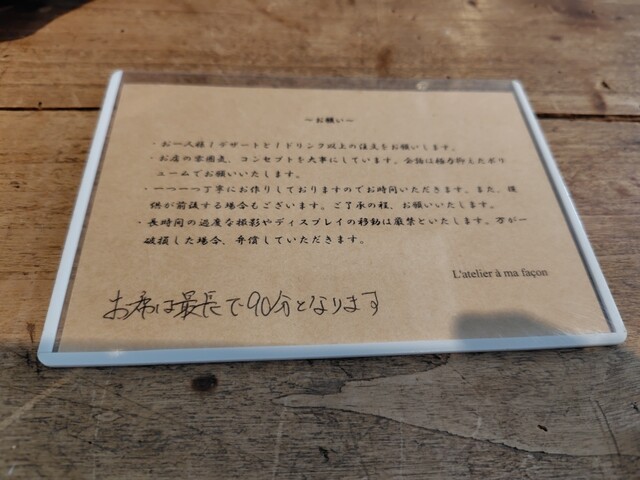 ～お願い～
・お一人様1デザートと1ドリンク以上の注文をお願いします。
・お店の雰囲気、コンセプトを大事にしています。会話は極力抑えたボリ
ュームでお願いいたします。
・一つ一つ丁寧にお作りしておりますのでお時間いただきます。また、提
供が前後する場合もございます。ご了承の程、お願いいたします。
・長時間の過度な撮影やディスプレイの移動は厳禁といたします。万が一
破損した場合、弁償していただきます。
L'atelier à ma façon
お席は最長で90分となります